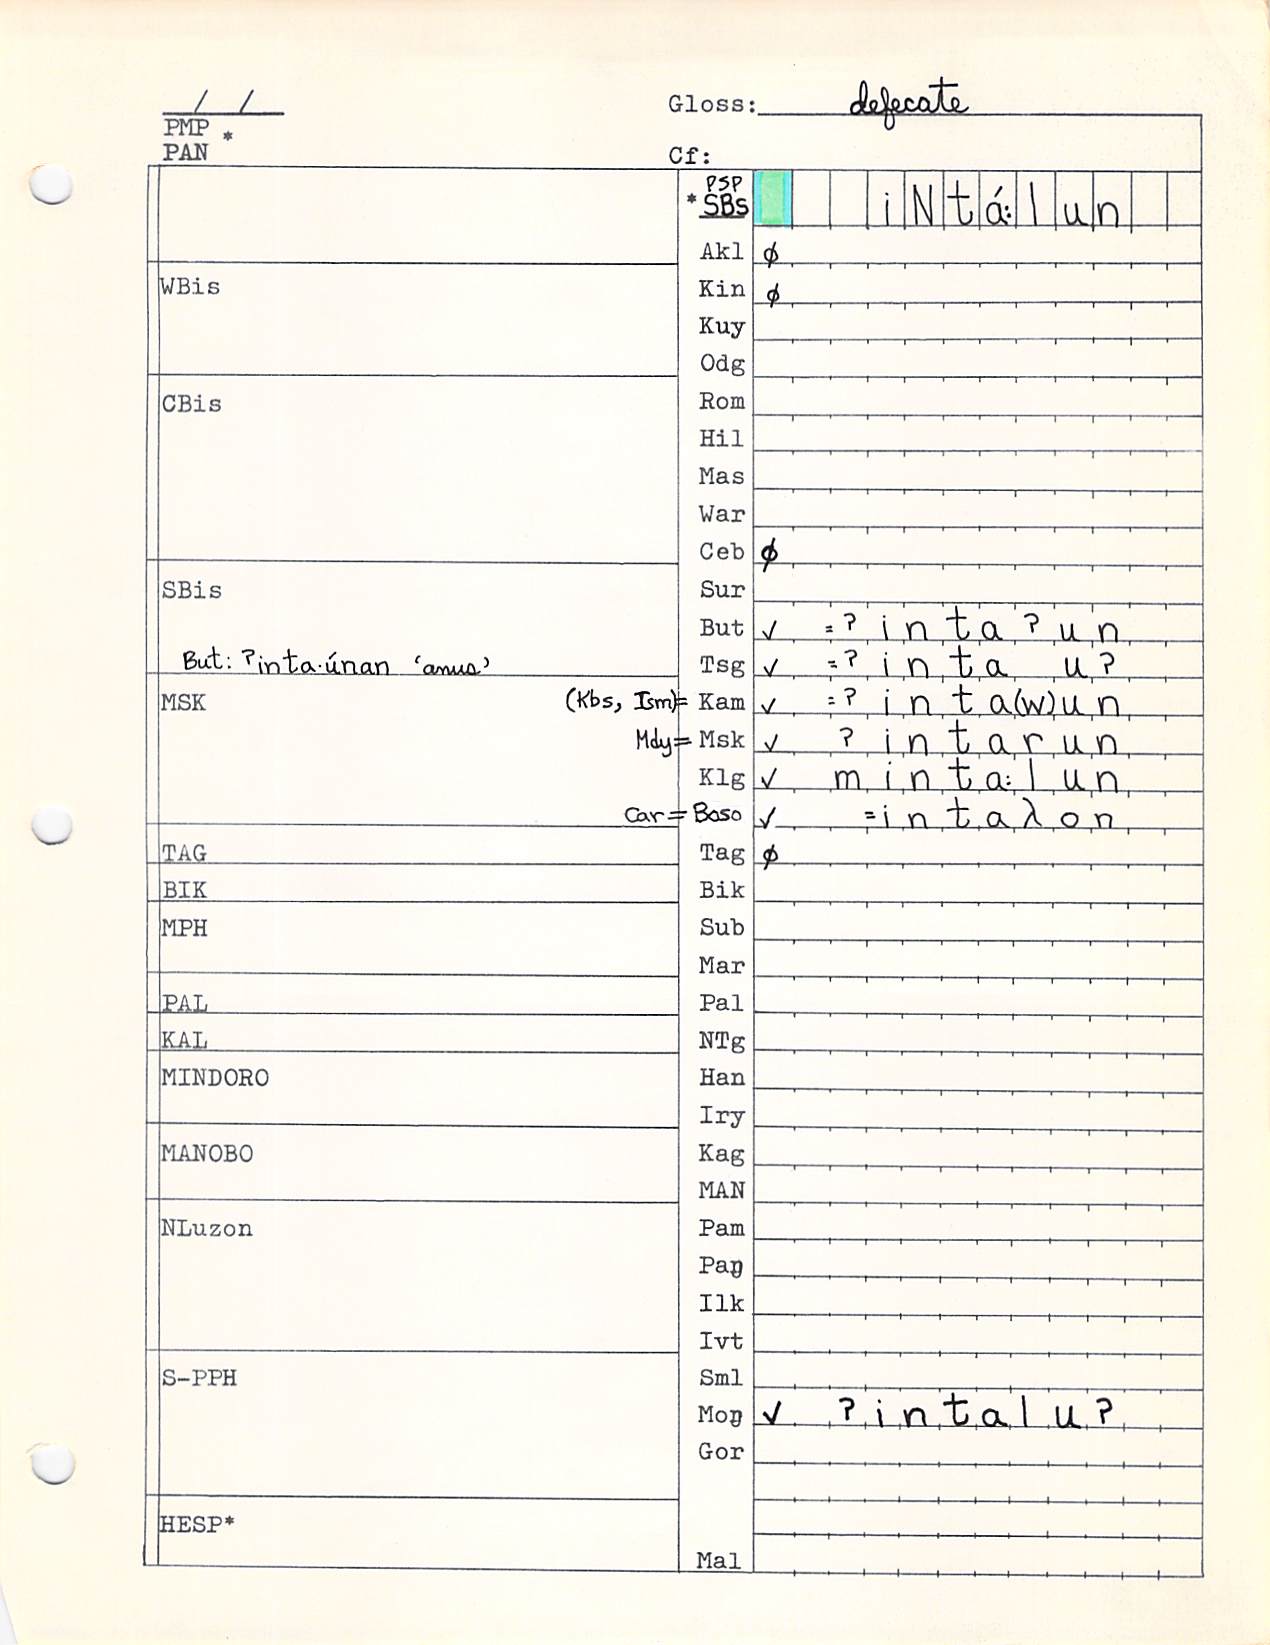 / /
Gloss: defecate
PMP *
PAN
Cf:
PSP
* SBs iNtá:lun
Akl ∅
WBis
Kin ∅
Kuy
Odg
CBis
Rom
Hil
Mas
War
Ceb ∅
SBis
Sur
But ✓ =ʔintaʔun
But: ʔinta·únan ‘anus’
Tsg ✓ =ʔinta uʔ
MSK
(Kbs, Ism)= Kam ✓ =ʔinta(w)un
Mdy= Msk ✓ ʔintarun
Klg ✓ minta:lun
Car= Boso ✓ =intaλon
TAG
Tag ∅
BIK
Bik
MPH
Sub
Mar
PAL
Pal
KAL
NTg
MINDORO
Han
Iry
MANOBO
Kag
MAN
NLuzon
Pam
Paŋ
Ilk
Ivt
S-PPH
Sml
Moŋ ✓ ʔintaluʔ
Gor
HESP*
Mal